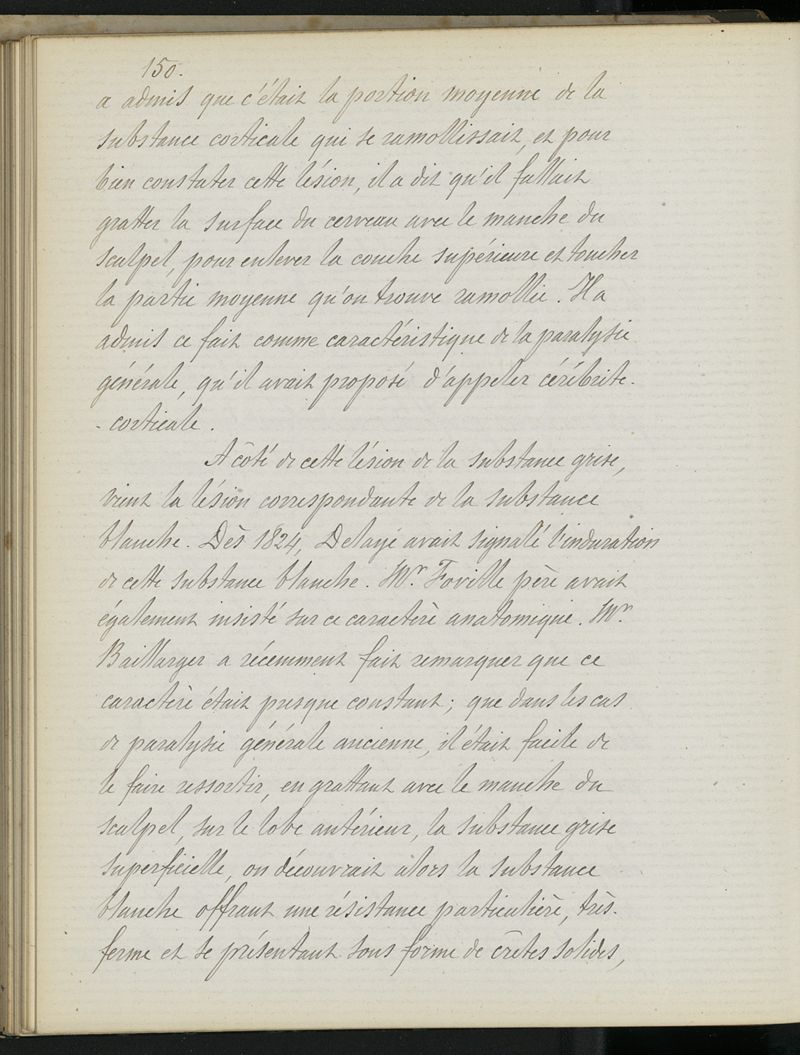 150.
a admis que c'était la portion moyenne de la
substance corticale qui se ramollissait, et pour
bien constater cette lésion, il a dit qu'il fallait
gratter la surface du cerveau avec le manche du
scalpel, pour enlever la couche supérieure et toucher
la partie moyenne qu'on trouve ramollie. Il a
admis ce fait comme caractéristique de la paralysie
générale, qu'il avait proposé d'appeler cérébrite-
-corticale.
A côté de cette lésion de la substance grise,
vient la lésion correspondante de la substance
blanche. Dès 1824, Delaye avait signalé l'induration
de cette substance blanche. Mr. Foville père avait
également insisté sur ce caractère anatomique. Mr.
Baillarger a récemment fait remarquer que ce
caractère était presque constant; que dans les cas
de paralysie générale ancienne, il était facile de
le faire ressortir, en grattant avec le manche du
scalpel, sur le lobe antérieur, la substance grise
superficielle, on découvrait alors la substance
blanche offrant une résistance particulière, très-
ferme et se présentant sous forme de crêtes solides,